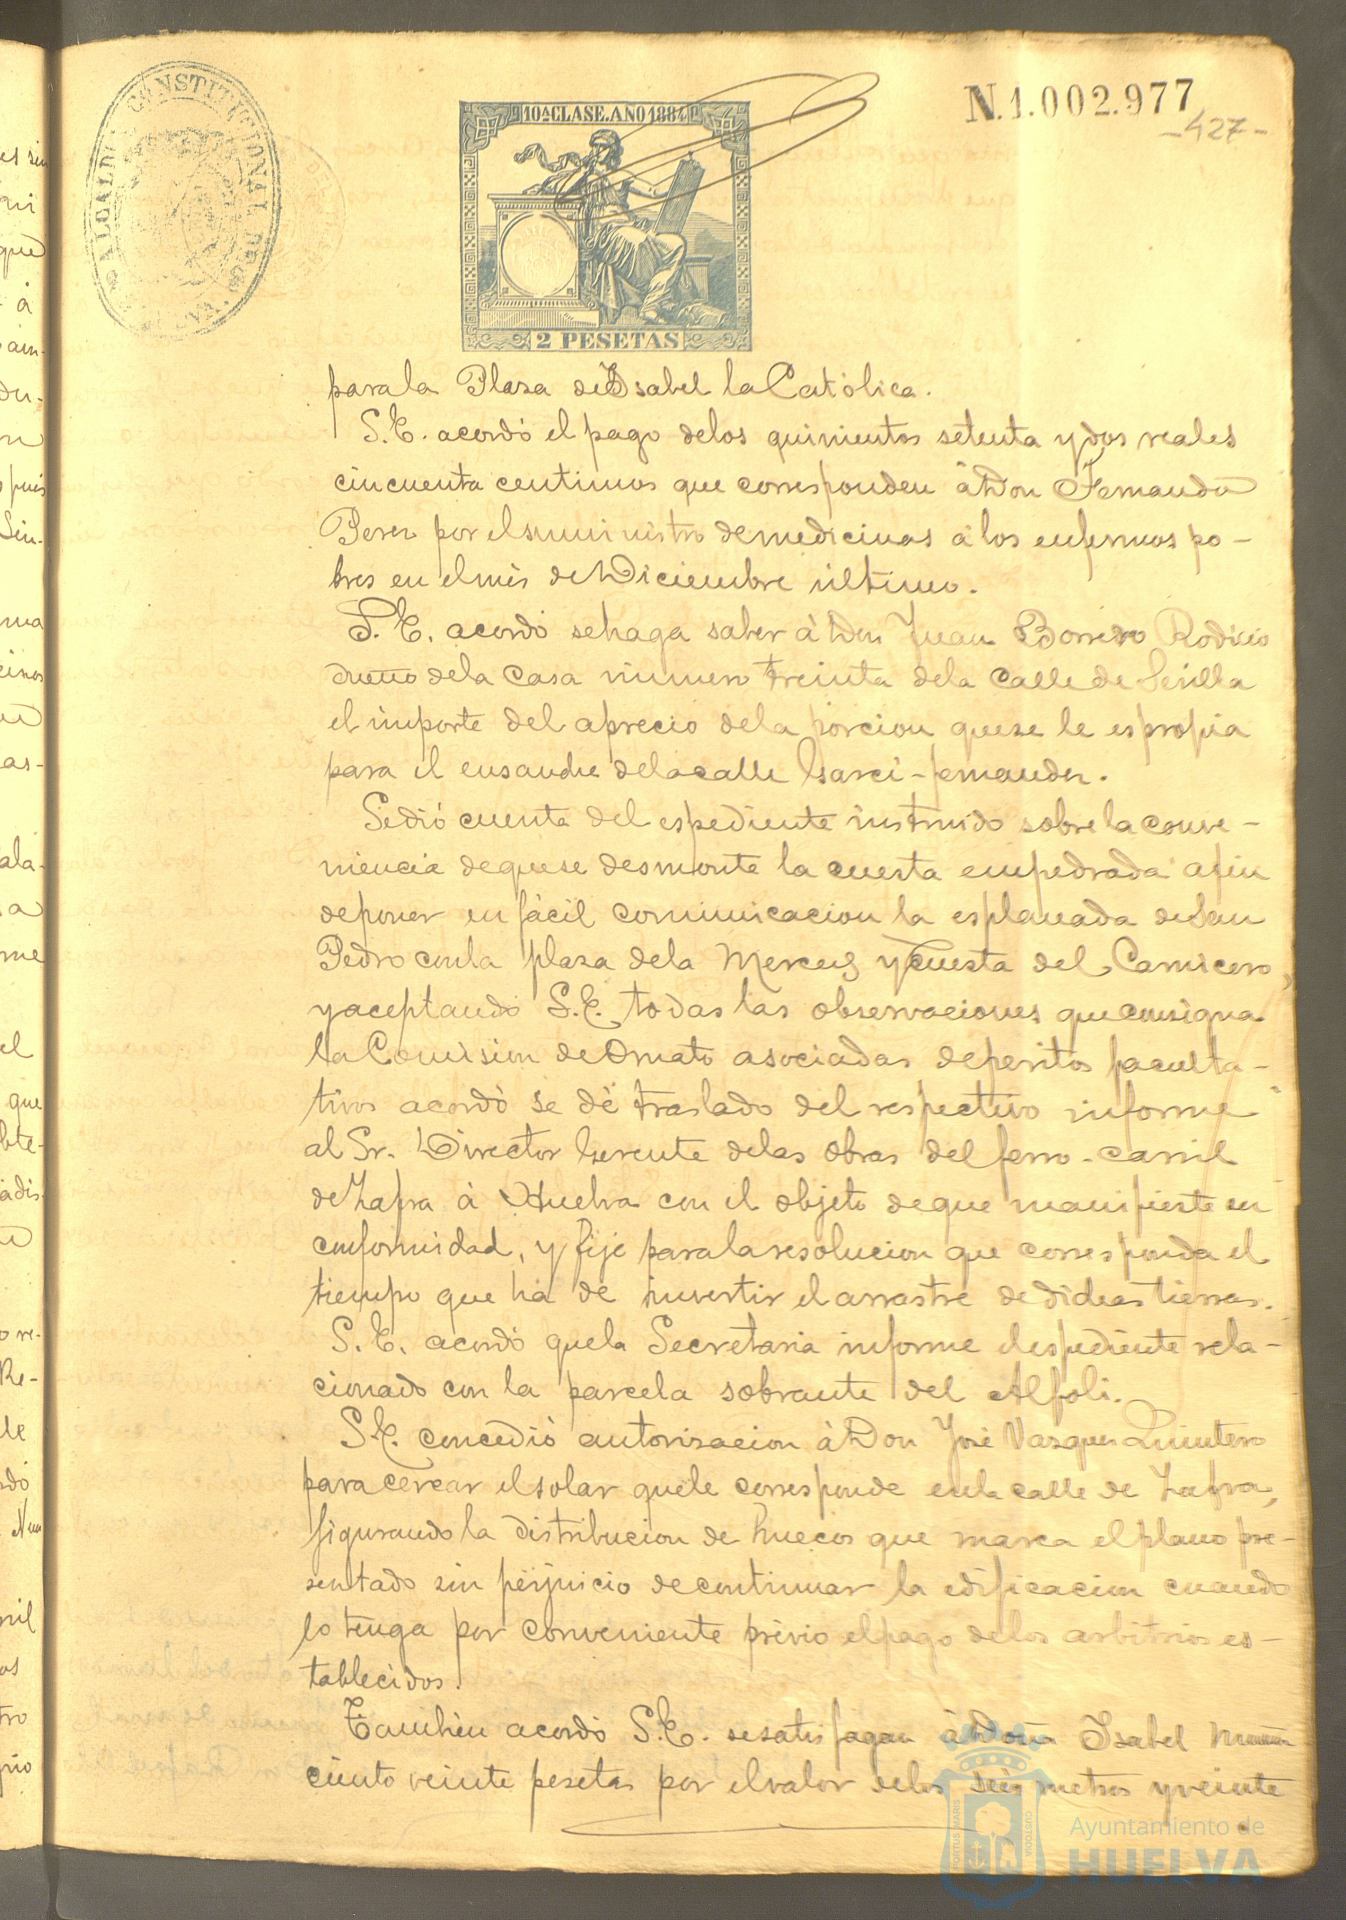 ALCALDIA CONSTITUCIONAL DE
10ª CLASE. AÑO 1884
N.1.002.977
-427-
2 PESETAS
para la Plaza de Isabel la Católica.
S.E. acordó el pago delos quinientos setenta y dos reales
cincuenta centimos que corresponden á Don Fernando
Perez por el suministro de medicinas á los enfermos po-
bres en el mes de Diciembre último.
S.E. acordó sehaga saber á Don Juan Borrero Rodicio
dueño dela casa numero treinta dela calle de Sevilla
el importe del aprecio dela porcion quese le espropia
para el ensanche dela calle Garci-fernandez.
Sedió cuenta del espediente instruido sobre la conve-
niencia dequese desmonte la cuesta empedrada afin
deponer en fácil comunicacion la esplanada deSan
Pedro conla plaza dela Merced y cuesta del Carnicero,
y aceptando S.E. todas las observaciones que consigna
la Comision de Ornato asociadas deperitos faculta-
tivos acordó se dé traslado del respectivo informe
al Sr. Director Gerente delas obras del ferro-carril
de Zafra á Huelva con el objeto deque manifieste su
conformidad, y fije parala resolucion que corresponda el
tiempo que ha de invertir el arrastre de dichas tierras.
S.E. acordó quela Secretaria informe el espediente rela-
cionado con la parcela sobrante del Alfoli.
S.E. concedió autorizacion á Don José Vazquez Quintero
para cercar el solar quele corresponde enla calle de Zafra,
figurando la distribucion de huecos que marca el plano pre-
sentado sin perjuicio decontinuar la edificacion cuando
lo tenga por conveniente prévio el pago delos arbitrios es-
tablecidos.
Tambien acordó S.E. sesatisfagan á Doña Isabel
ciento veinte pesetas por el valor delos seis metros y veinte
PORTUS MARIS
CUSTODIA
Ayuntamiento de
HUELVA